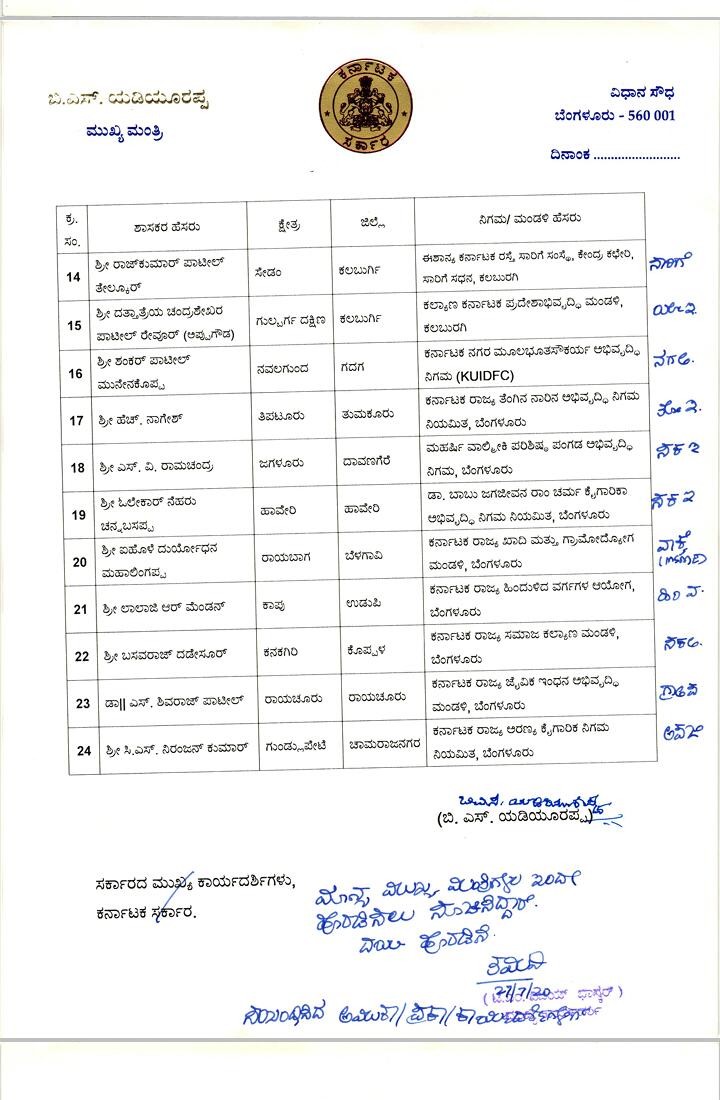 ಬಿ.ಎಸ್. ಯಡಿಯೂರಪ್ಪ
ಮುಖ್ಯ ಮಂತ್ರಿ
ಕರ್ನಾಟಕ
ಸರ್ಕಾರ
ವಿಧಾನ ಸೌಧ
ಬೆಂಗಳೂರು - 560 001
ದಿನಾಂಕ .........................
ಕ್ರ. ಸಂ. ಶಾಸಕರ ಹೆಸರು ಕ್ಷೇತ್ರ ಜಿಲ್ಲೆ ನಿಗಮ/ ಮಂಡಳಿ ಹೆಸರು
14 ಶ್ರೀ ರಾಜ್‌ಕುಮಾರ್ ಪಾಟೀಲ್ ಸೇಡಂ ಕಲಬುರ್ಗಿ ಈಶಾನ್ಯ ಕರ್ನಾಟಕ ರಸ್ತೆ ಸಾರಿಗೆ ಸಂಸ್ಥೆ, ಕೇಂದ್ರ ಕಛೇರಿ, ಸಾರಿಗೆ
ತೇಲ್ಕೂರ್ ಸಾರಿಗೆ ಸಧನ, ಕಲಬುರಗಿ
15 ಶ್ರೀ ದತ್ತಾತ್ರೆಯ ಚಂದ್ರಶೇಖರ ಗುಲ್ಬರ್ಗ ದಕ್ಷಿಣ ಕಲಬುರ್ಗಿ ಕಲ್ಯಾಣ ಕರ್ನಾಟಕ ಪ್ರದೇಶಾಭಿವೃದ್ಧಿ ಮಂಡಳಿ,
ಪಾಟೀಲ್ ರೇವೂರ್ (ಅಪ್ಪುಗೌಡ) ಕಲಬುರಗಿ
16 ಶ್ರೀ ಶಂಕರ್ ಪಾಟೀಲ್ ನವಲಗುಂದ ಗದಗ ಕರ್ನಾಟಕ ನಗರ ಮೂಲಭೂತಸೌಕರ್ಯ ಅಭಿವೃದ್ಧಿ
ಮುನೇನಕೊಪ್ಪ ನಿಗಮ (KUIDFC)
17 ಶ್ರೀ ಹೆಚ್. ನಾಗೇಶ್ ತಿಪಟೂರು ತುಮಕೂರು ಕರ್ನಾಟಕ ರಾಜ್ಯ ತೆಂಗಿನ ನಾರಿನ ಅಭಿವೃದ್ಧಿ ನಿಗಮ
ನಿಯಮಿತ, ಬೆಂಗಳೂರು
18 ಶ್ರೀ ಎಸ್. ವಿ. ರಾಮಚಂದ್ರ ಜಗಳೂರು ದಾವಣಗೆರೆ ಮಹರ್ಷಿ ವಾಲ್ಮೀಕಿ ಪರಿಶಿಷ್ಟ ಪಂಗಡ ಅಭಿವೃದ್ಧಿ
ನಿಗಮ, ಬೆಂಗಳೂರು
19 ಶ್ರೀ ಓಲೇಕಾರ್ ನೆಹರು ಹಾವೇರಿ ಹಾವೇರಿ ಡಾ. ಬಾಬು ಜಗಜೀವನ ರಾಂ ಚರ್ಮ ಕೈಗಾರಿಕಾ
ಚನ್ನಬಸಪ್ಪ ಅಭಿವೃದ್ಧಿ ನಿಗಮ ನಿಯಮಿತ, ಬೆಂಗಳೂರು
20 ಶ್ರೀ ಐಹೊಳೆ ದುರ್ಯೋಧನ ರಾಯಬಾಗ ಬೆಳಗಾವಿ ಕರ್ನಾಟಕ ರಾಜ್ಯ ಖಾದಿ ಮತ್ತು ಗ್ರಾಮೋದ್ಯೋಗ
ಮಹಾಲಿಂಗಪ್ಪ ಮಂಡಳಿ, ಬೆಂಗಳೂರು
21 ಶ್ರೀ ಲಾಲಾಜಿ ಆರ್ ಮೆಂಡನ್ ಕಾಪು ಉಡುಪಿ ಕರ್ನಾಟಕ ರಾಜ್ಯ ಹಿಂದುಳಿದ ವರ್ಗಗಳ ಆಯೋಗ,
ಬೆಂಗಳೂರು
22 ಶ್ರೀ ಬಸವರಾಜ್ ದಡೇಸೂರ್ ಕನಕಗಿರಿ ಕೊಪ್ಪಳ ಕರ್ನಾಟಕ ರಾಜ್ಯ ಸಮಾಜ ಕಲ್ಯಾಣ ಮಂಡಳಿ,
ಬೆಂಗಳೂರು
23 ಡಾ|| ಎಸ್. ಶಿವರಾಜ್ ಪಾಟೀಲ್ ರಾಯಚೂರು ರಾಯಚೂರು ಕರ್ನಾಟಕ ರಾಜ್ಯ ಜೈವಿಕ ಇಂಧನ ಅಭಿವೃದ್ಧಿ
ಮಂಡಳಿ, ಬೆಂಗಳೂರು
24 ಶ್ರೀ ಸಿ.ಎಸ್. ನಿರಂಜನ್ ಕುಮಾರ್ ಗುಂಡ್ಲುಪೇಟೆ ಚಾಮರಾಜನಗರ ಕರ್ನಾಟಕ ರಾಜ್ಯ ಅರಣ್ಯ ಕೈಗಾರಿಕ ನಿಗಮ
ನಿಯಮಿತ, ಬೆಂಗಳೂರು
(ಬಿ. ಎಸ್. ಯಡಿಯೂರಪ್ಪ)
ಸರ್ಕಾರದ ಮುಖ್ಯ ಕಾರ್ಯದರ್ಶಿಗಳು,
ಕರ್ನಾಟಕ ಸರ್ಕಾರ.
ಮಾನ್ಯ ಮುಖ್ಯ ಮಂತ್ರಿಗಳು ಇಂದೇ
ಹೊರಡಿಸಲು ಸೂಚಿಸಿದ್ದಾರೆ.
ದಯವಿಟ್ಟು ಹೊರಡಿಸಿ.
27/7/20